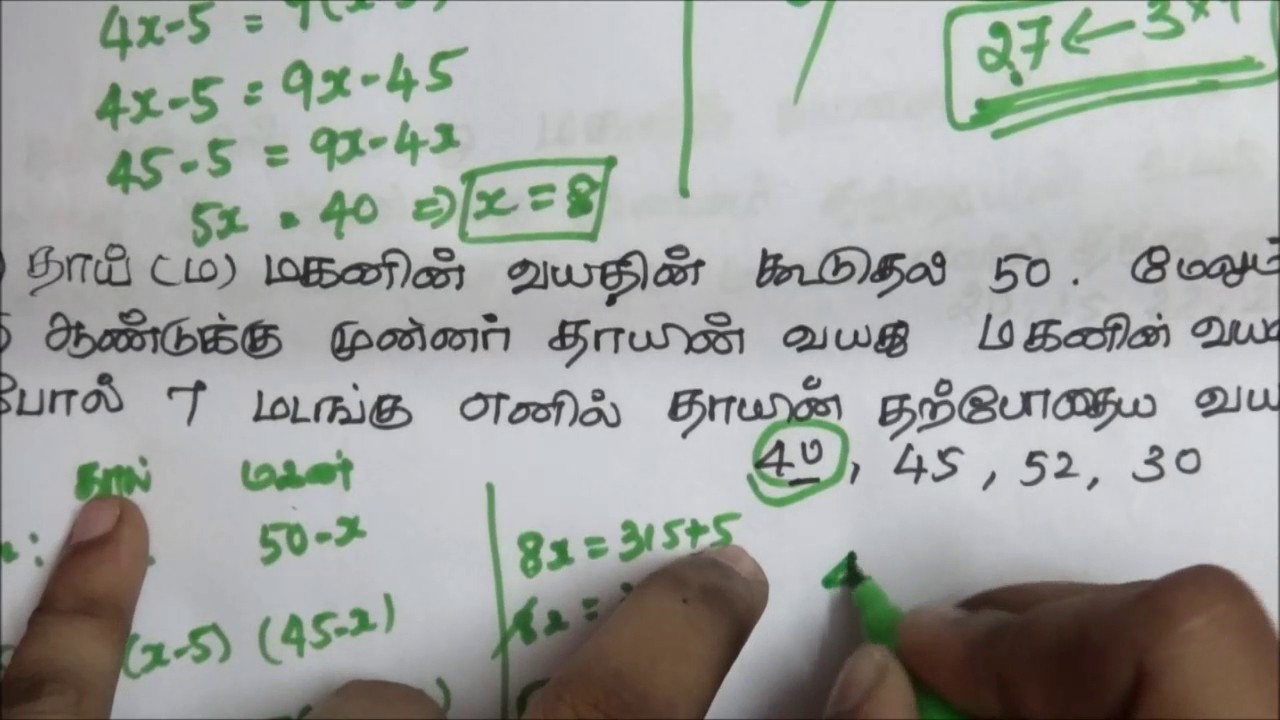 4x-5 =
4x-5 = 9x-45
45-5 = 9x-4x
5x = 40 ⇒ x = 8
27 ← 3×9
தாய் (ம) மகனின் வயதின் கூடுதல் 50. மேலும்
ஆண்டுக்கு முன்னர் தாயின் வயது மகனின்
போல் 7 மடங்கு எனில் தாயின் தற்போதைய
40, 45, 52, 30
தாய் மகன்
50-x
(x-5) (45-x)
8x = 315+5
8x =